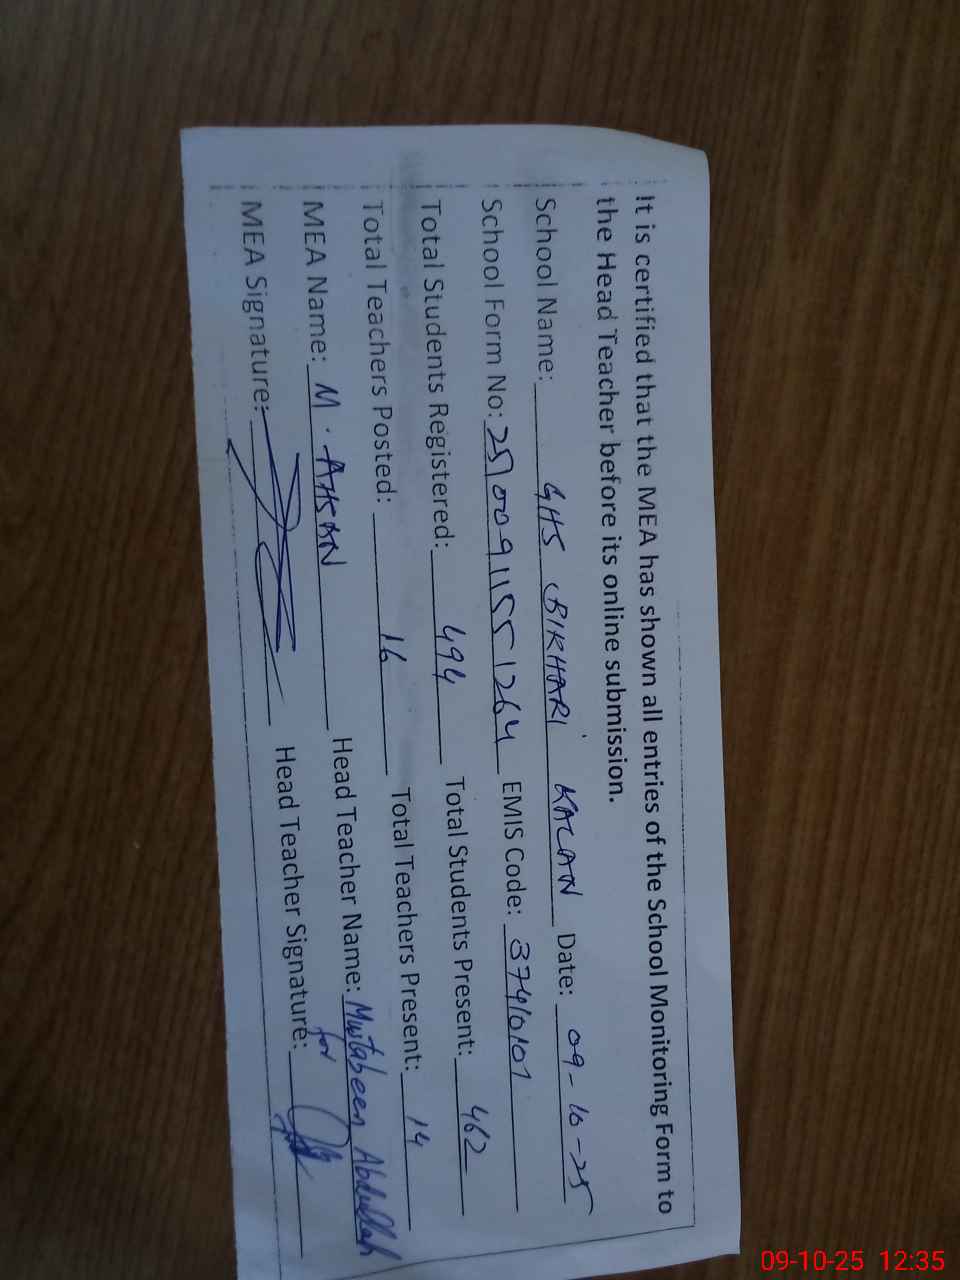 It is certified that the MEA has shown all entries of the School Monitoring Form to
the Head Teacher before its online submission.
School Name: GHS BIKHARI KALAN Date: 09-10-25
School Form No: 25100911551264 EMIS Code: 37410101
Total Students Registered: 494 Total Students Present: 462
Total Teachers Posted: 16 Total Teachers Present: 14
MEA Name: M. AHSAN Head Teacher Name: Mustabeen Abdullah
MEA Signature: Head Teacher Signature: for
09-10-25 12:35